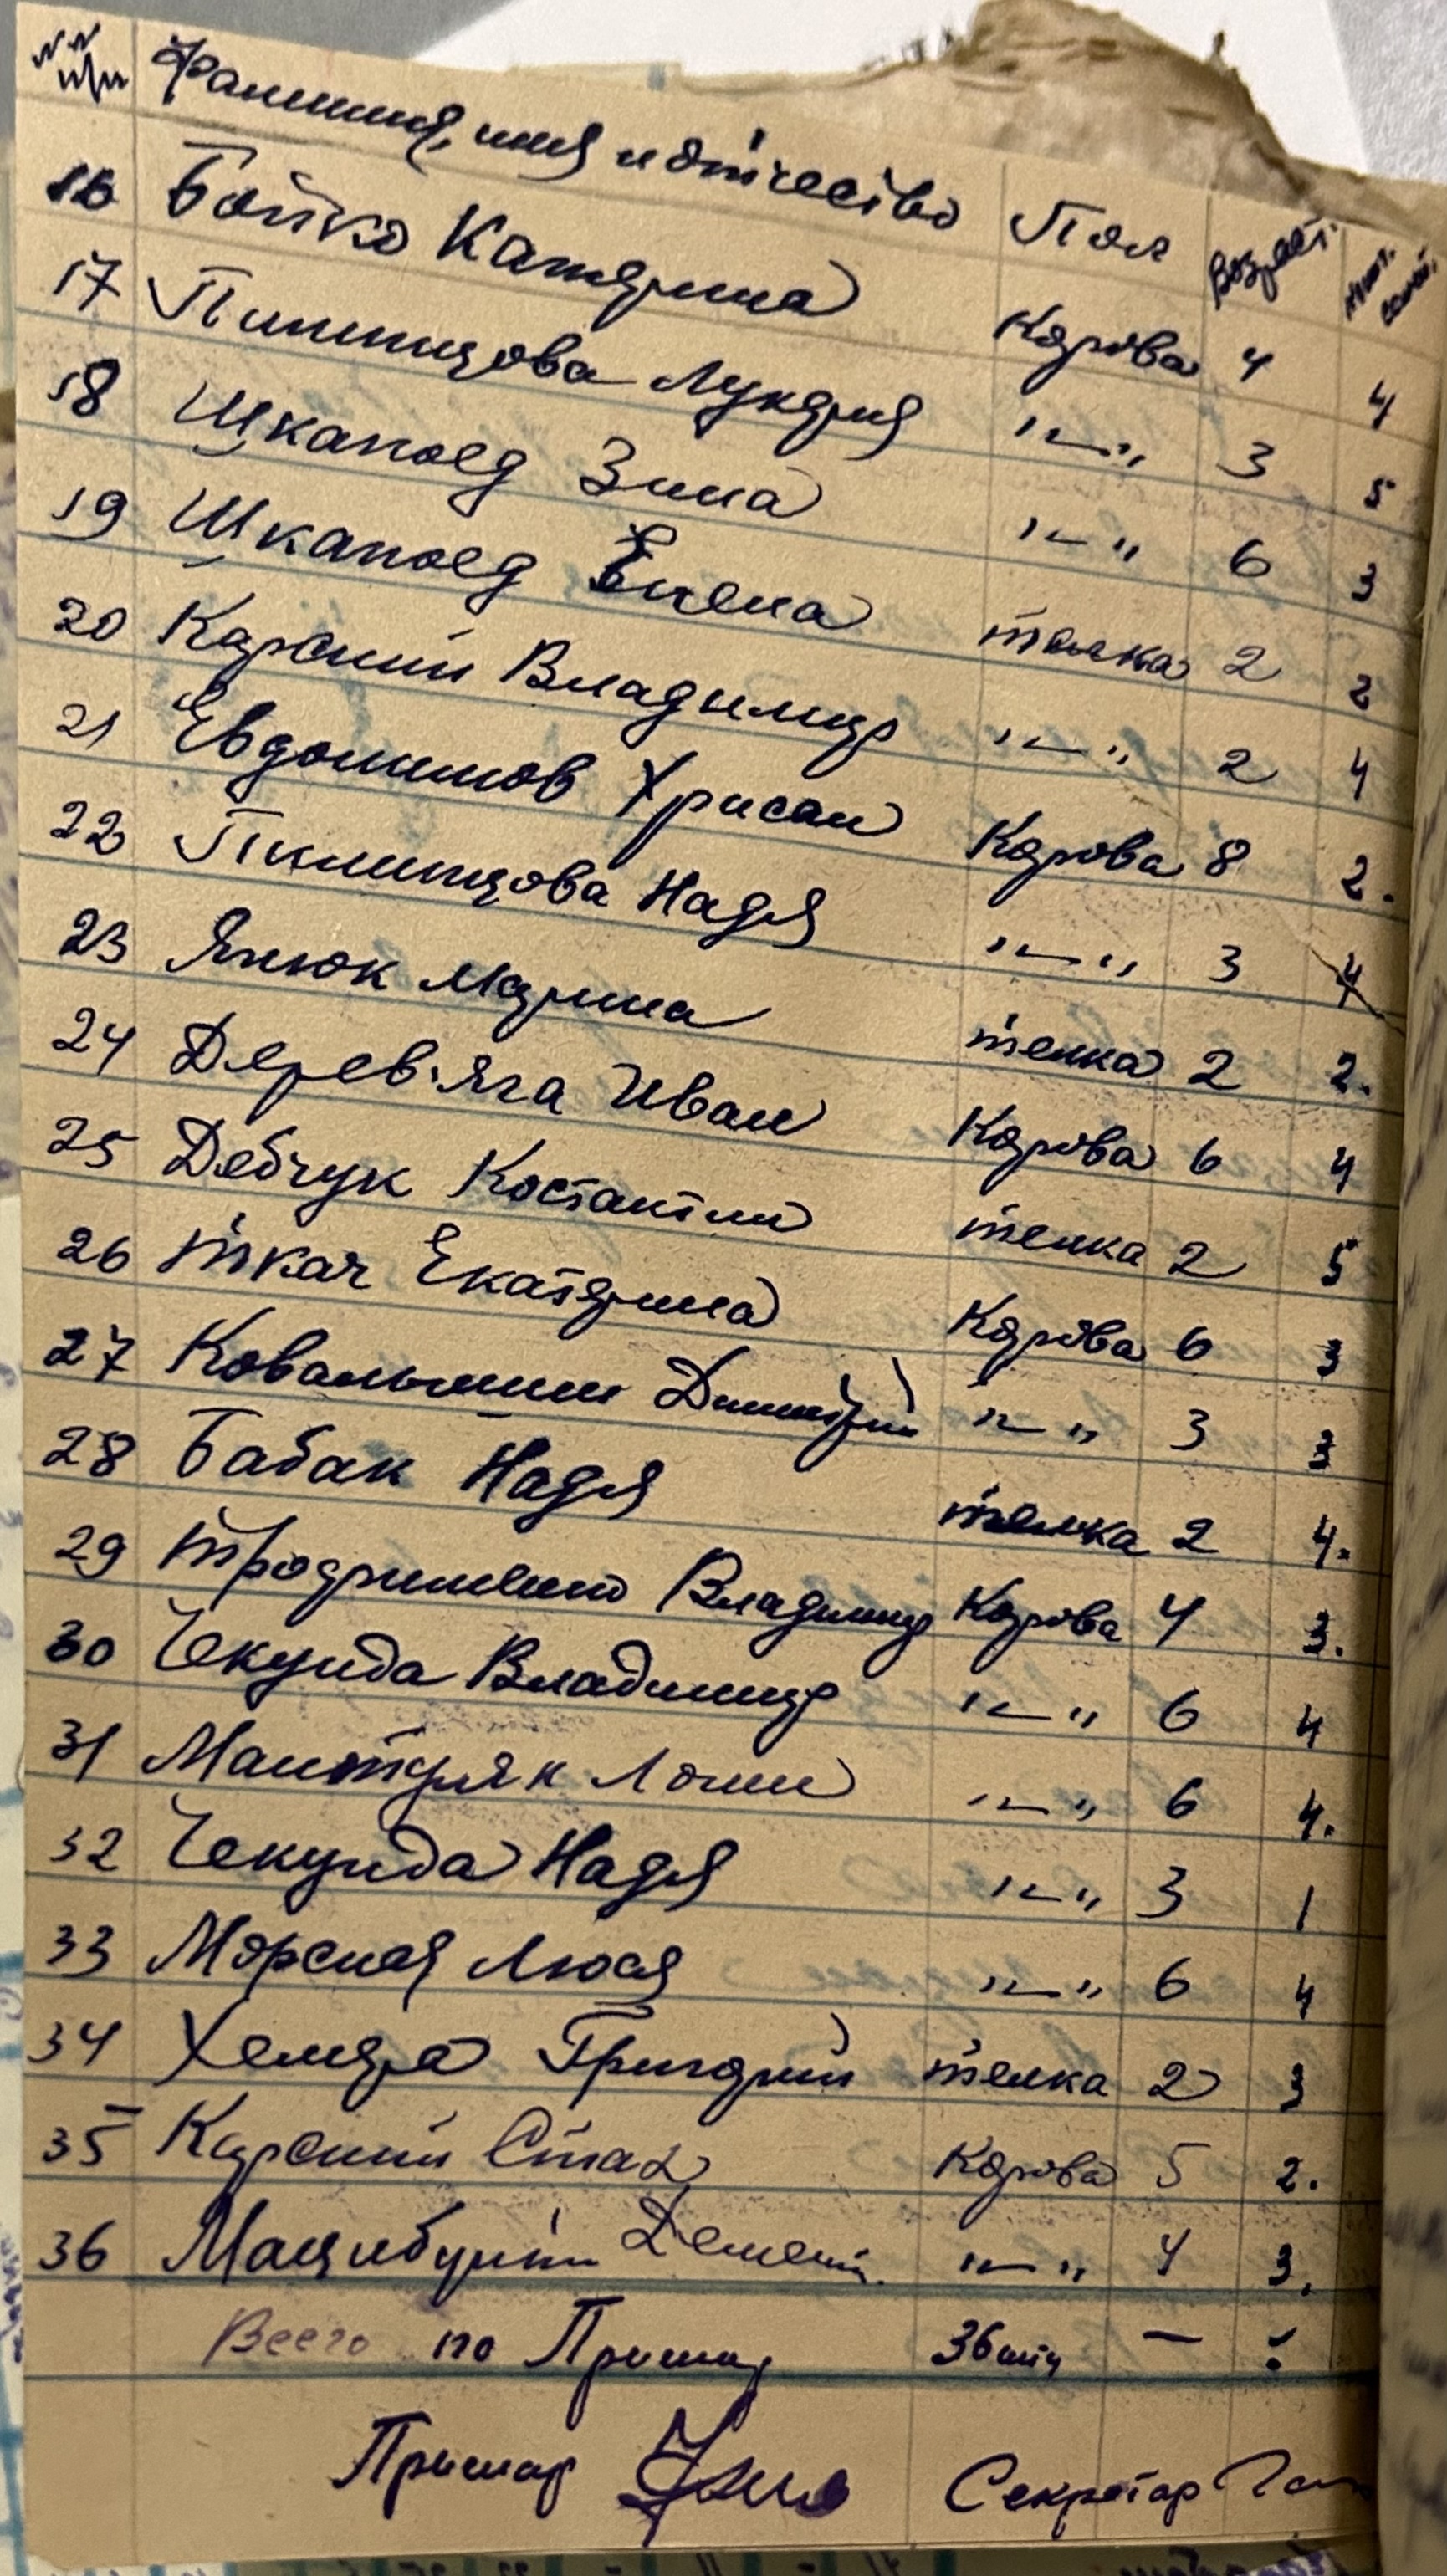 №№ п/п Фамилия, имя и отчество Пол Возраст. Кол. семей.
16 Бойко Катерина Корова 4 4
17 Пилипцова Лукерия "—" 3 5
18 Шкапоед Зина "—" 6 3
19 Шкапоед Елена телка 2 2
20 Карский Владимир "—" 2 4
21 Евдокимов Хрисан Корова 8 2.
22 Пилипцова Надя "—" 3 4
23 Янюк Марина телка 2 2.
24 Дерев'яга Иван Корова 6 4
25 Дебчук Костантин телка 2 5
26 Ткач Екатерина Корова 6 3
27 Ковальчин Димитрий "—" 3 3
28 Бабак Надя телка 2 4.
29 Владимир Корова 4 3.
30 Чекунда Владимир "—" 6 4
31 Мантуляк "—" 6 4.
32 Чекунда Надя "—" 3 1
33 Морская Люся "—" 6 4
34 Хемера Григорий телка 2 3
35 Карский Стах Корова 5 2.
36 "—" 4 3.
Всего по Примар 36 шту —
Примар Секретар